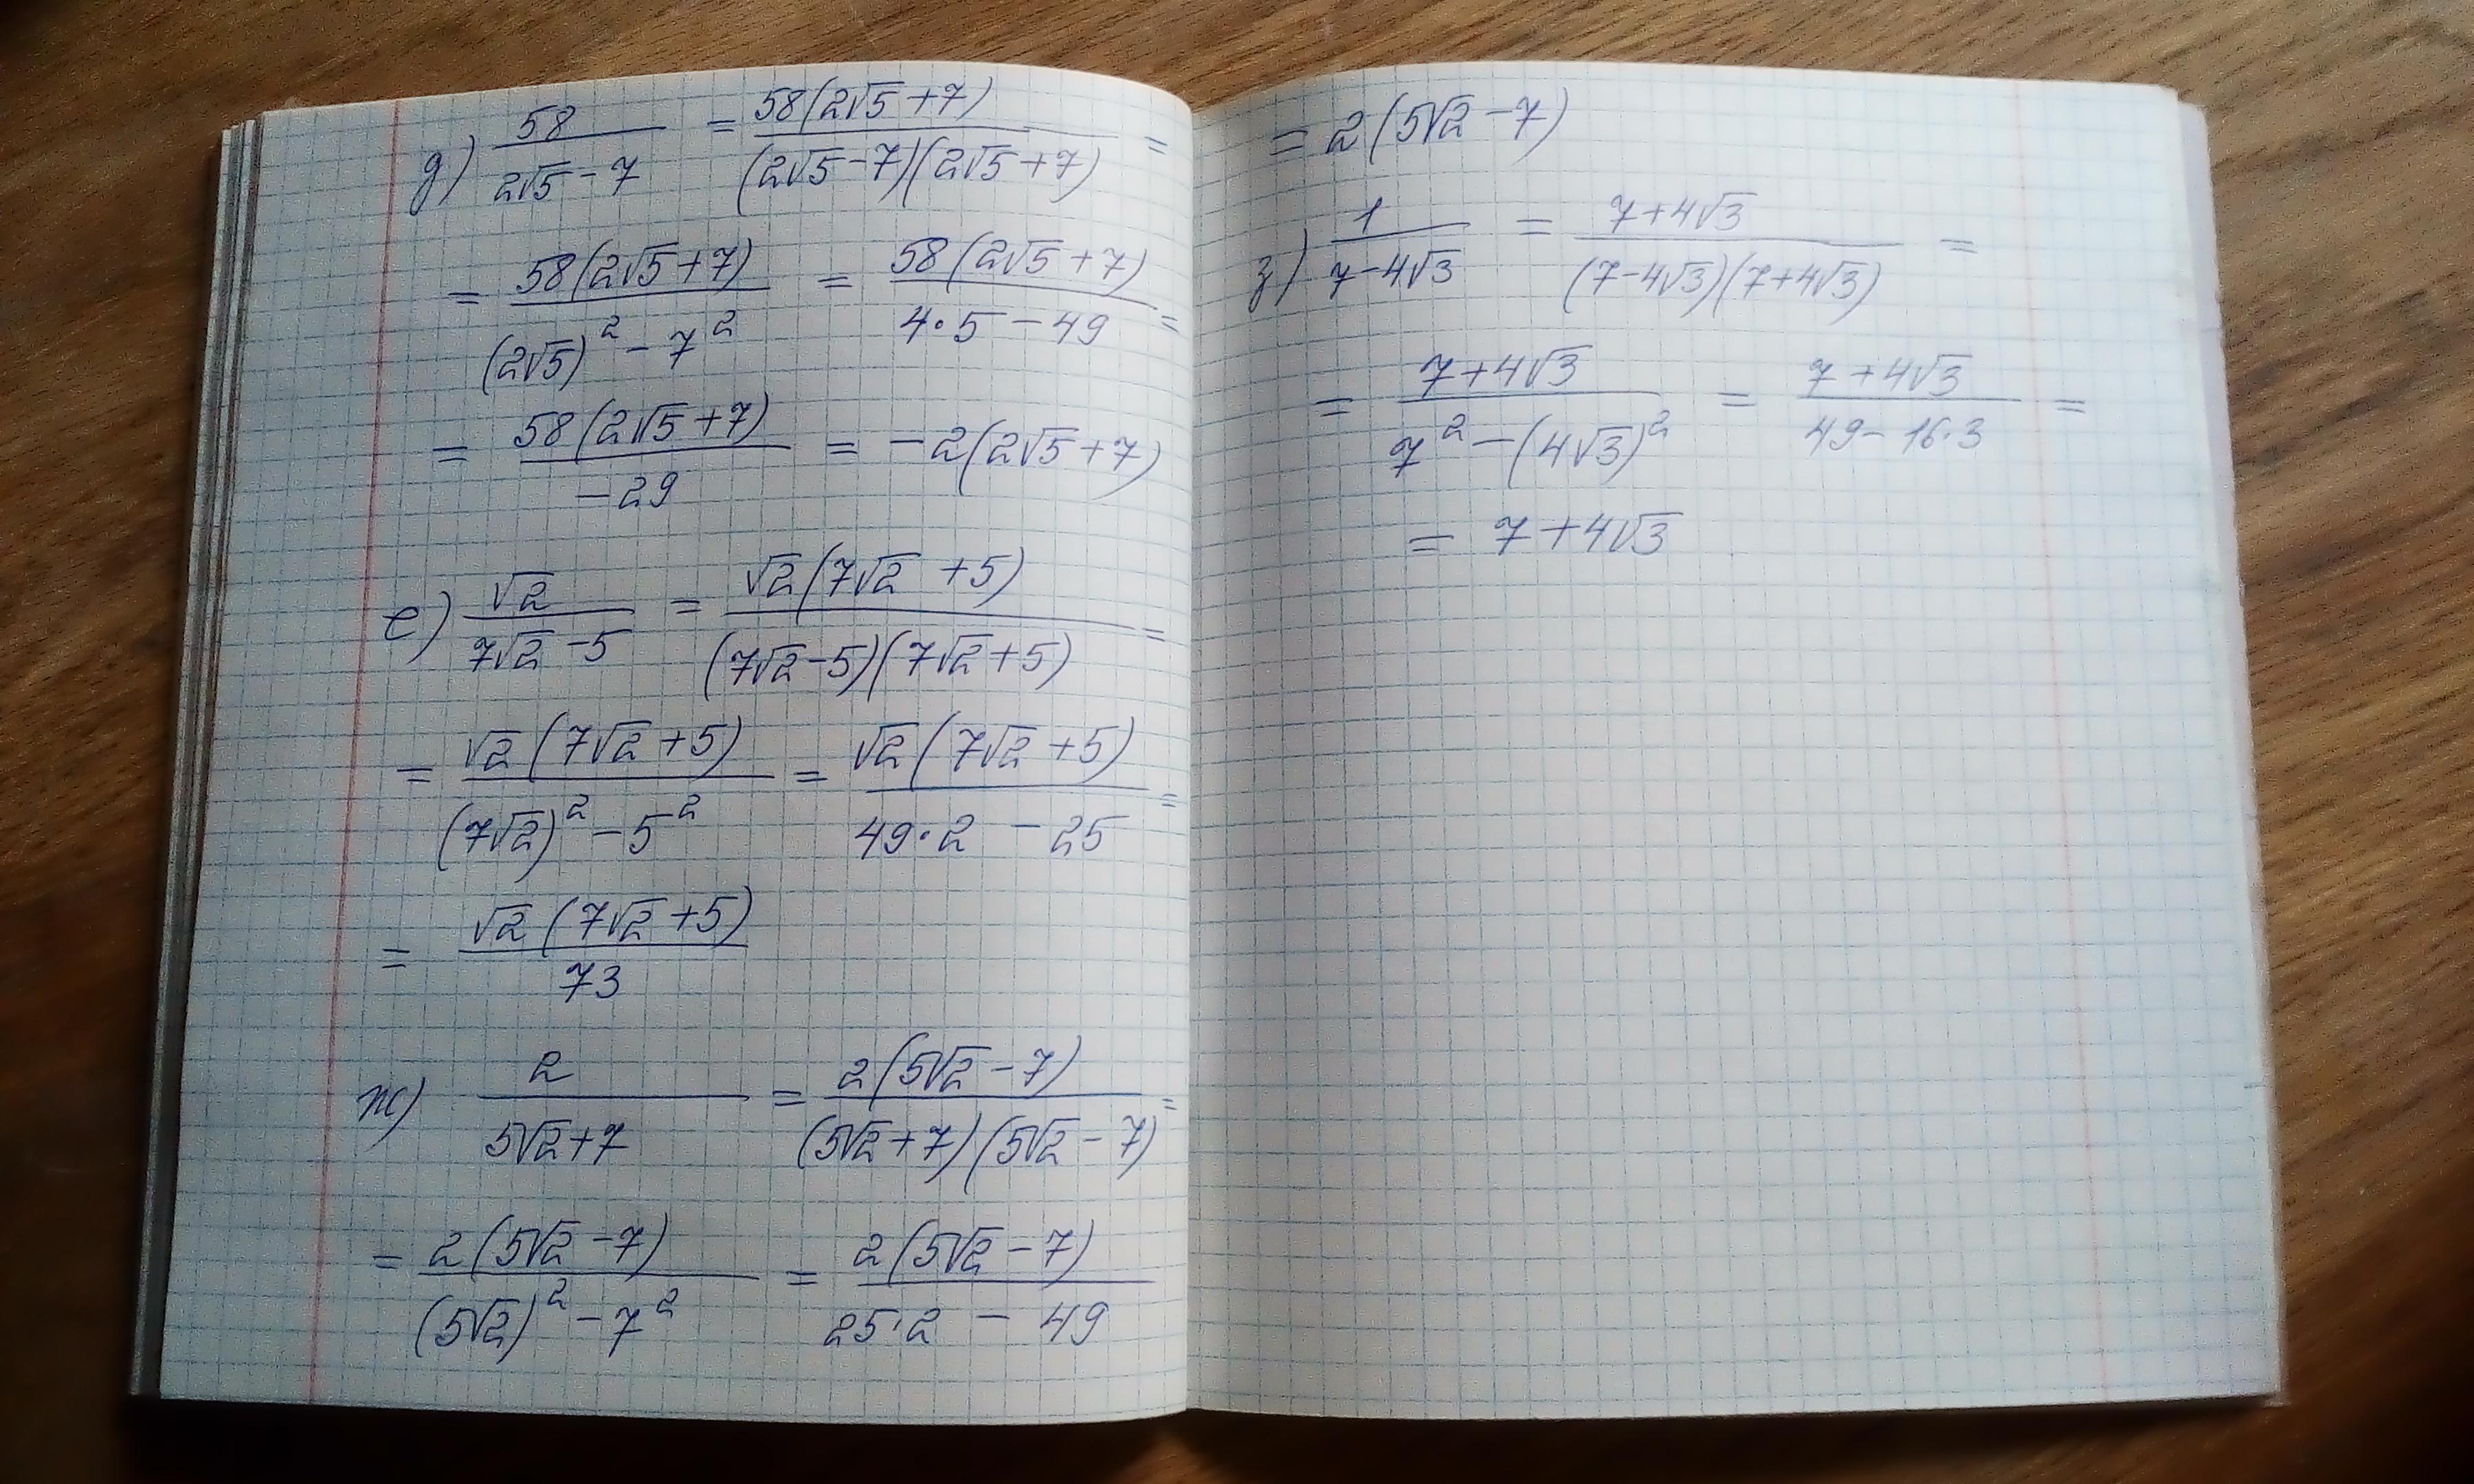 д) 58/(2√5 - 7) = 58(2√5 + 7)/((2√5 - 7)(2√5 + 7)) =
= 58(2√5 + 7)/((2√5)² - 7²) = 58(2√5 + 7)/(4·5 - 49) =
= 58(2√5 + 7)/(-29) = -2(2√5 + 7)
е) √2/(7√2 - 5) = √2(7√2 + 5)/((7√2 - 5)(7√2 + 5)) =
= √2(7√2 + 5)/((7√2)² - 5²) = √2(7√2 + 5)/(49·2 - 25) =
= √2(7√2 + 5)/73
ж) 2/(5√2 + 7) = 2(5√2 - 7)/((5√2 + 7)(5√2 - 7)) =
= 2(5√2 - 7)/((5√2)² - 7²) = 2(5√2 - 7)/(25·2 - 49)
= 2(5√2 - 7)
з) 1/(7 - 4√3) = (7 + 4√3)/((7 - 4√3)(7 + 4√3)) =
= (7 + 4√3)/(7² - (4√3)²) = (7 + 4√3)/(49 - 16·3) =
= 7 + 4√3